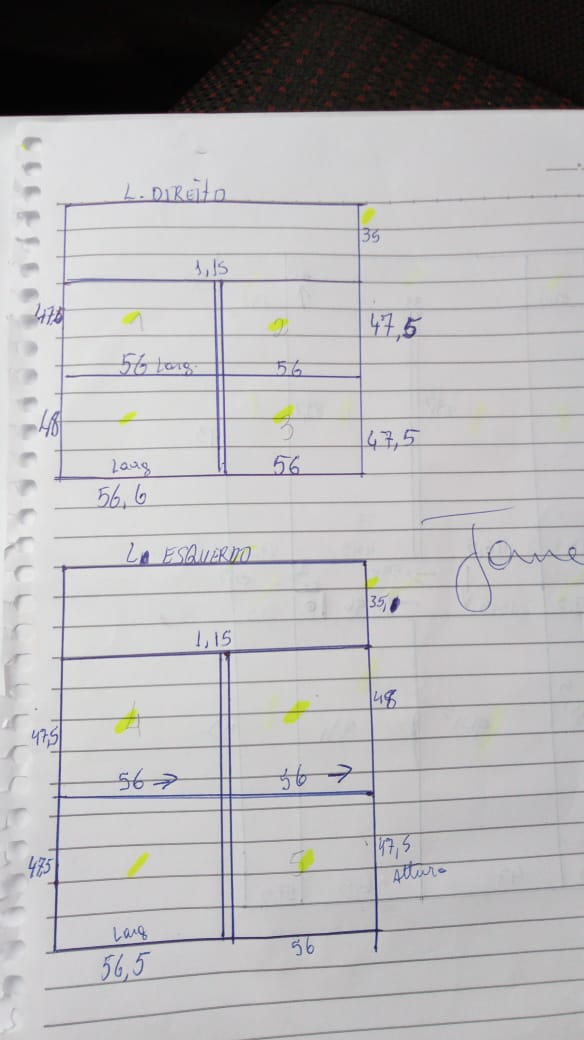 L. DIREITO
35
1,15
47,5 1 2 47,5
56 Larg. 56
48 3 47,5
Larg 56
56,6
L. ESQUERDO
Jane
35,
1,15
4 48
47,5
56 → 56 →
47,5
475 5 Altura
Larg 56
56,5